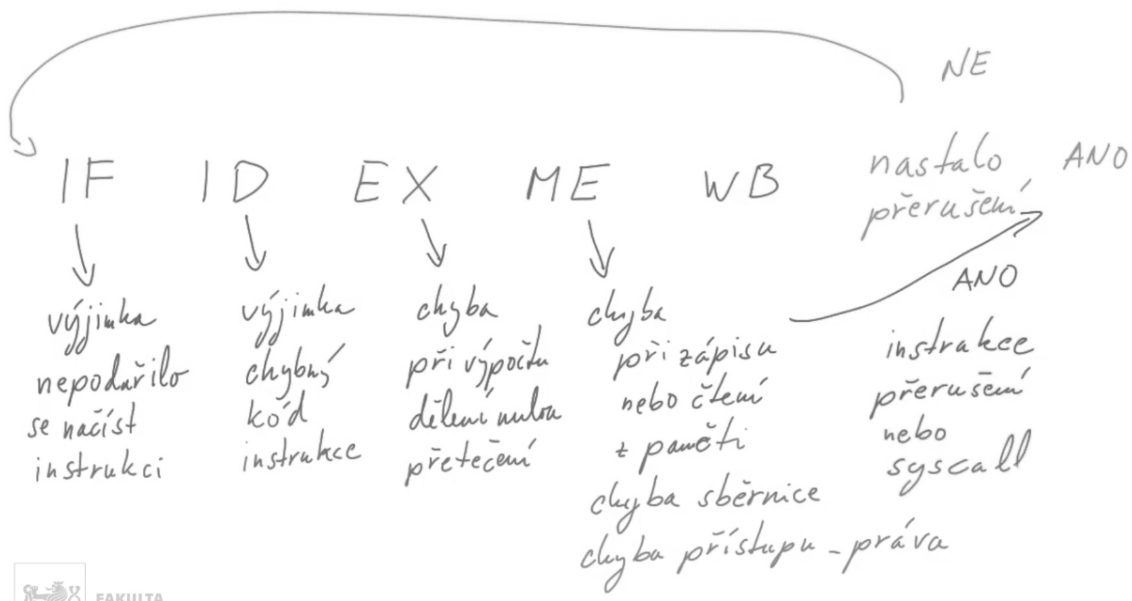 NE
nastalo
přerušení
ANO
IF ID EX ME WB
výjimka
nepodařilo
se načíst
instrukci
výjimka
chybný
kód
instrukce
chyba
při výpočtu
dělení nulou
přetečení
chyba
při zápisu
nebo čtení
z paměti
chyba sběrnice
chyba přístupu - práva
ANO
instrukce
přerušení
nebo
syscall
FAKULTA